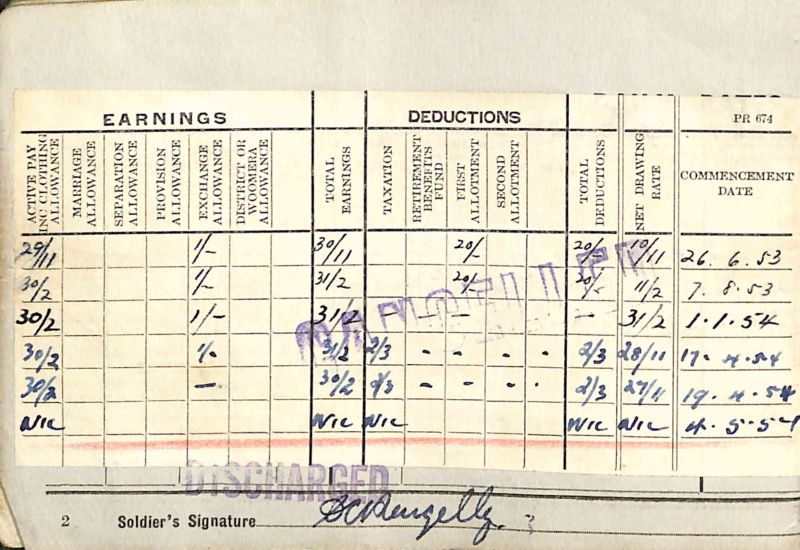 EARNINGS DEDUCTIONS PR 674
ACTIVE PAY INC CLOTHING ALLOWANCE MARRIAGE ALLOWANCE SEPARATION ALLOWANCE PROVISION ALLOWANCE EXCHANGE ALLOWANCE DISTRICT OR WOOMERA ALLOWANCE TOTAL EARNINGS TAXATION RETIREMENT BENEFITS FUND FIRST ALLOTMENT SECOND ALLOTMENT TOTAL DEDUCTIONS NET DRAWING RATE COMMENCEMENT DATE
29/11 1/- 30/11 20/- 20/- 10/11 26. 6. 53
30/2 1/- 31/2 20/- 20/- 11/2 7. 8. 53
30/2 1/- 31/2 - - - - 31/2 1. 1. 54
CANCELLED
30/2 1/- 31/2 2/3 - - - 2/3 28/11 17. 4. 54
30/2 - 30/2 2/3 - - - 2/3 27/11 19. 4. 54
NIL NIL NIL NIL NIL 4. 5. 54
DISCHARGED
2 Soldier's Signature